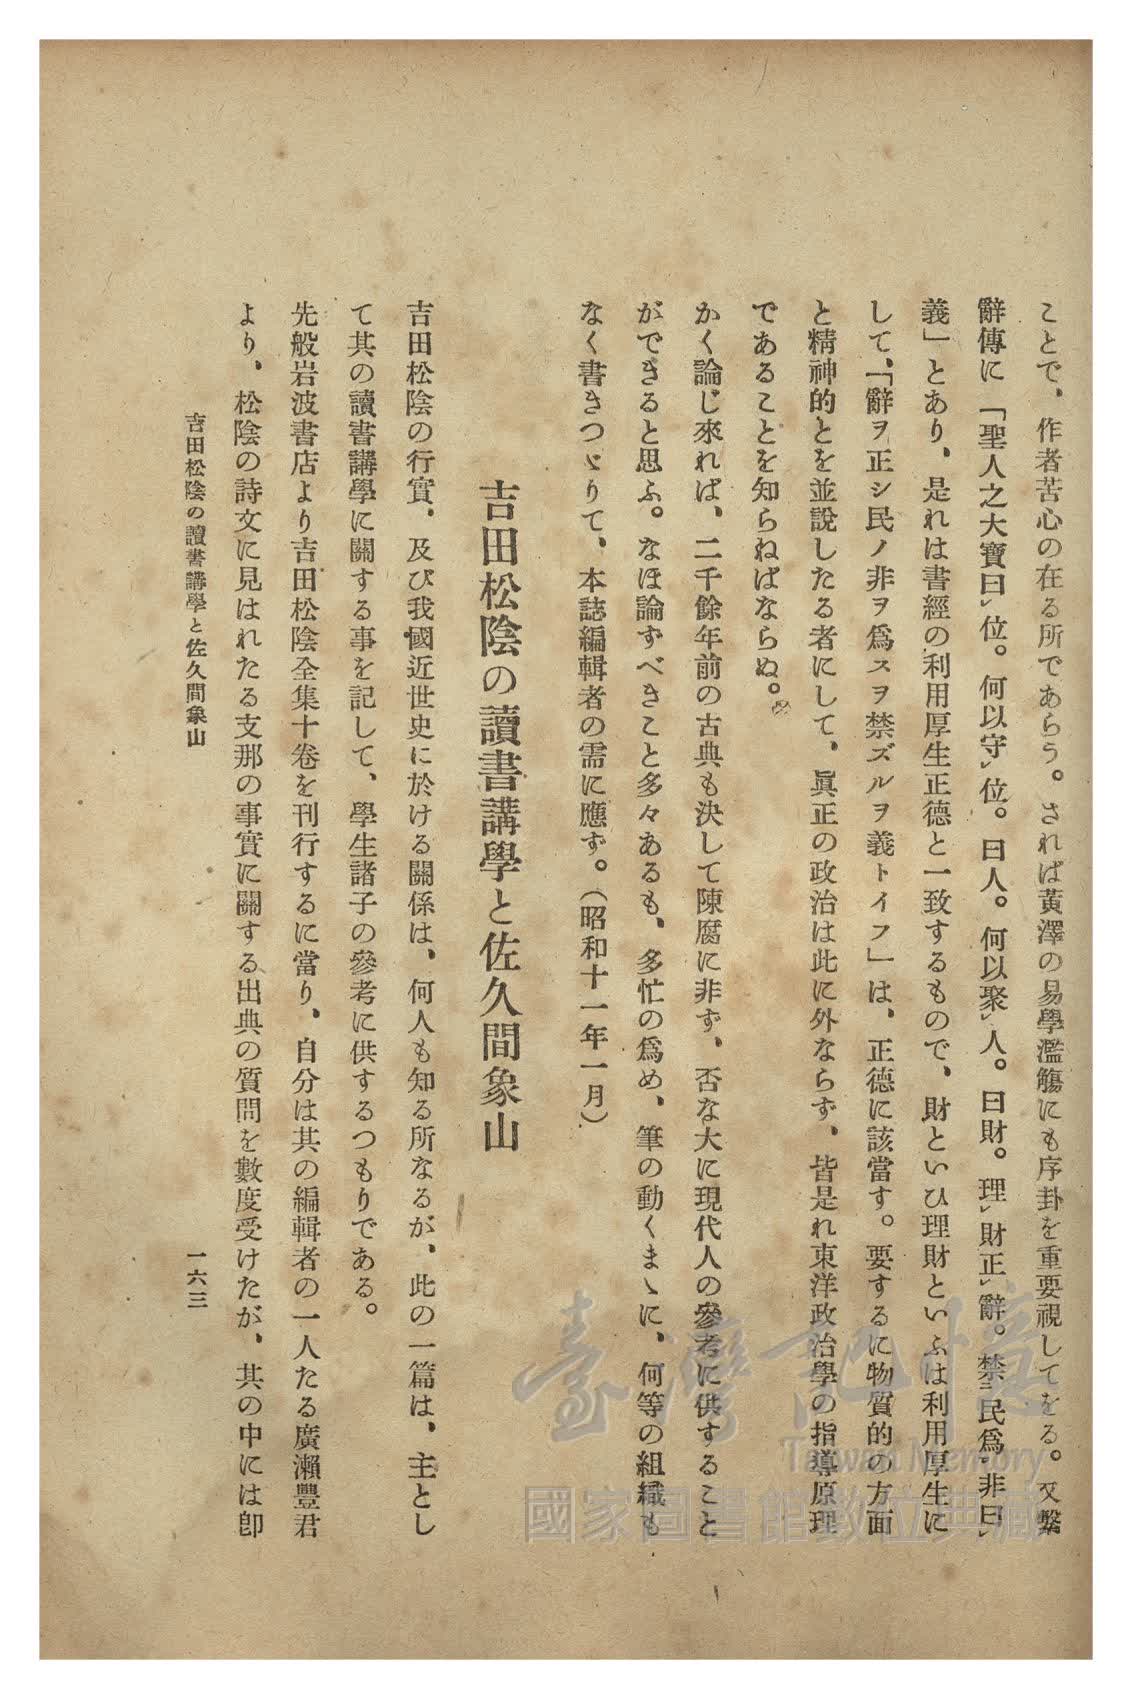 ことで、作者苦心の在る所であらう。されば黃澤の易學濫觴にも序卦を重要視してをる。又繫
辭傳に「聖人之大寶曰レ位。何以守レ位。曰人。何以聚レ人。曰財。理レ財正レ辭。禁二民爲一レ非曰レ
義」とあり、是れは書經の利用厚生正德と一致するもので、財といひ理財といふは利用厚生に
して、「辭ヲ正シ民ノ非ヲ爲スヲ禁ズルヲ義トイフ」は、正德に該當す。要するに物質的の方面
と精神的とを並說したる者にして、眞正の政治は此に外ならず、皆是れ東洋政治學の指導原理
であることを知らねばならぬ。
かく論じ來れば、二千餘年前の古典も決して陳腐に非ず、否な大に現代人の參考に供すること
ができると思ふ。なほ論ずべきこと多々あるも、多忙の爲め、筆の動くまゝに、何等の組織も
なく書きつゞりて、本誌編輯者の需に應ず。（昭和十一年一月）
吉田松陰の讀書講學と佐久間象山
吉田松陰の行實、及び我國近世史に於ける關係は、何人も知る所なるが、此の一篇は、主とし
て其の讀書講學に關する事を記して、學生諸子の參考に供するつもりである。
先般岩波書店より吉田松陰全集十卷を刊行するに當り、自分は其の編輯者の一人たる廣瀨豐君
より、松陰の詩文に見はれたる支那の事實に關する出典の質問を數度受けたが、其の中には卽
吉田松陰の讀書講學と佐久間象山
一六三
臺灣記憶
Taiwan Memory
國家圖書館數位典藏